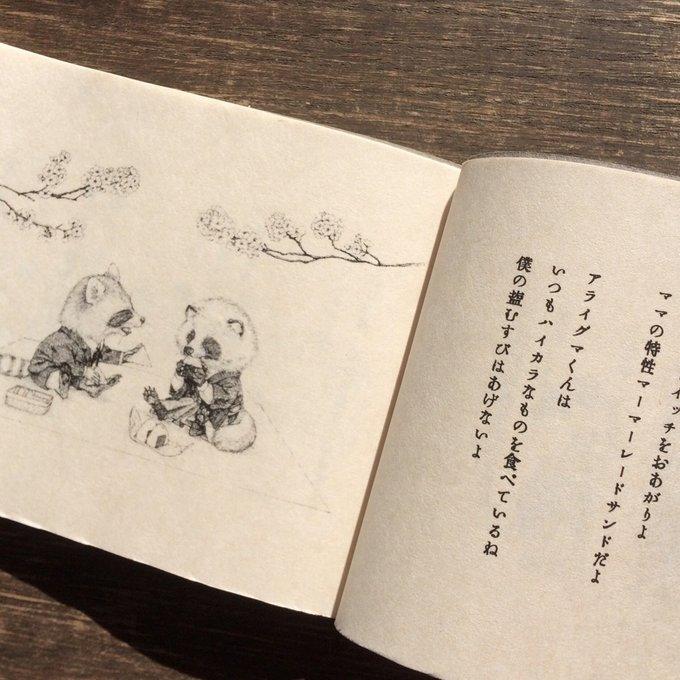 イッチをおあがりよ
ママの特性マーマーレードサンドだよ
アライグマくんは
いつもハイカラなものを食べているね
僕の鹽むすびはあげないよ